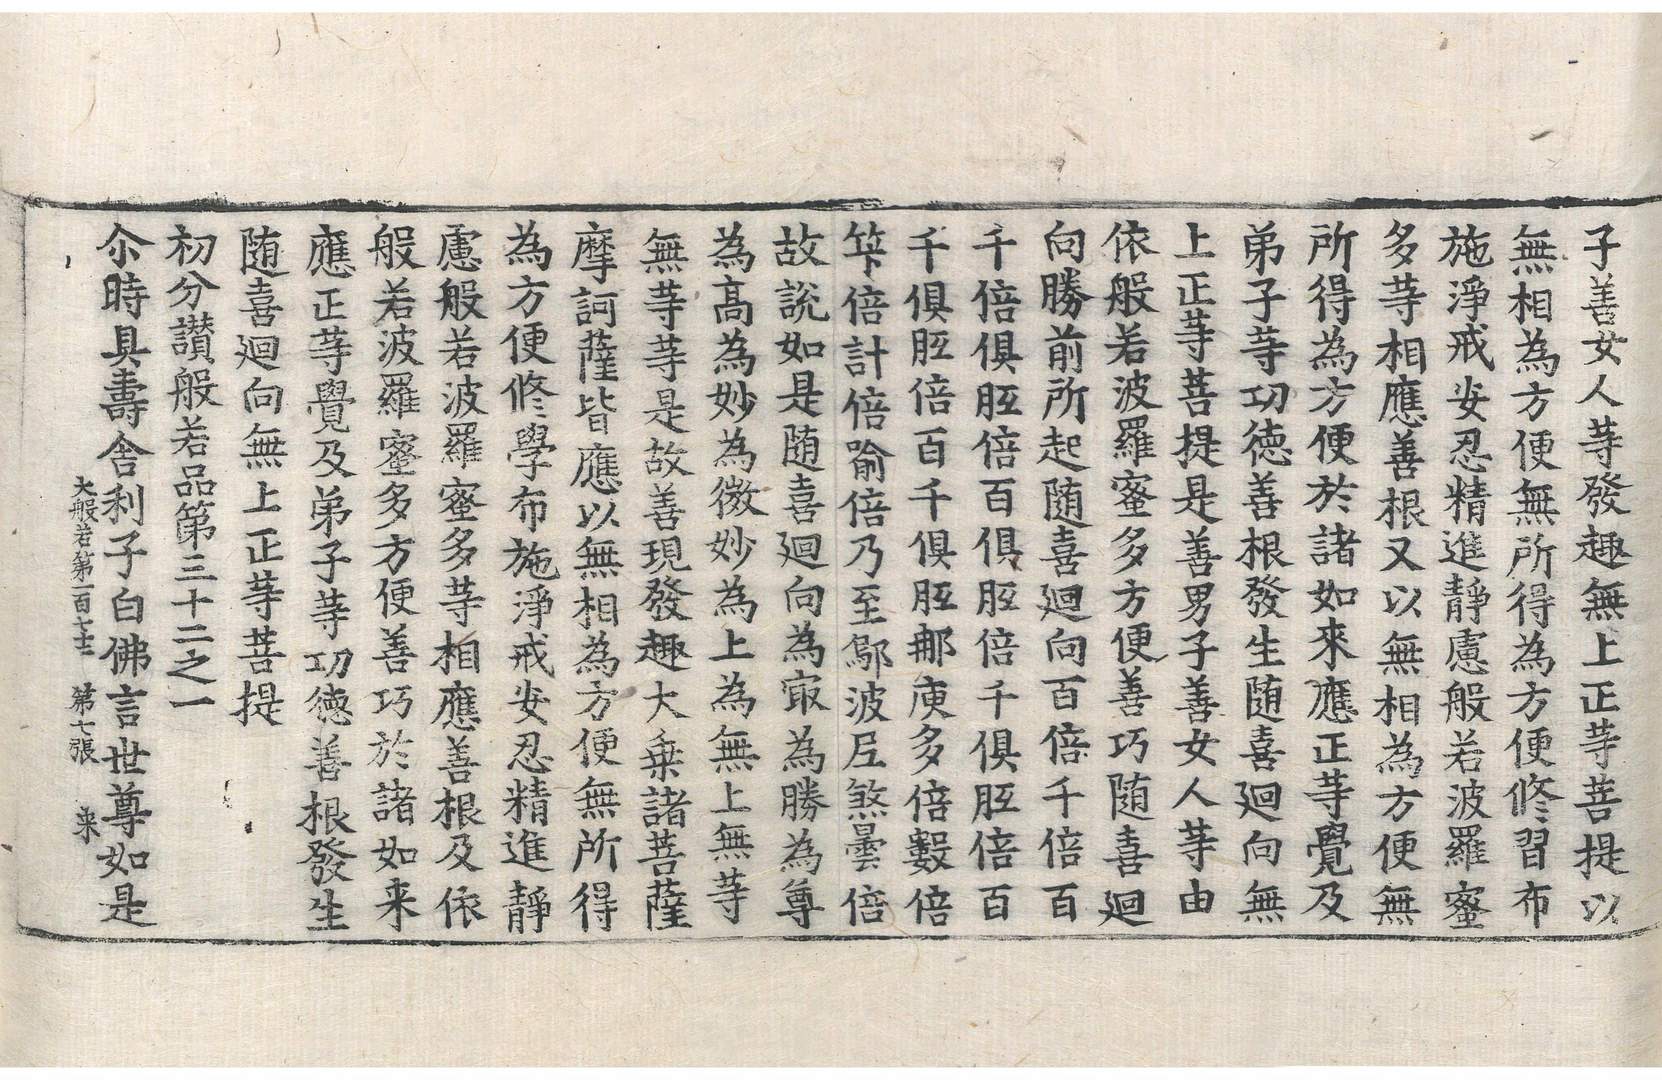 子善女人䓁發趣無上正䓁菩提以
無相為方便無所得為方便修習布
施淨戒安忍精進靜慮般若波羅蜜
多䓁相應善根又以無相為方便無
所得為方便於諸如來應正䓁覺及
弟子䓁功徳善根發生随喜迴向無
上正䓁菩提是善男子善女人䓁由
依般若波羅蜜多方便善巧随喜迴
向勝前所起随喜迴向百倍千倍百
千倍俱胝倍百俱胝倍千俱胝倍百
千俱胝倍百千俱胝那庾多倍數倍
笇倍計倍喻倍乃至鄔波尼煞曇倍
故說如是随喜迴向為㝡為勝為尊
為髙為妙為微妙為上為無上無䓁
無䓁䓁是故善現發趣大乗諸菩薩
摩訶薩皆應以無相為方便無所得
為方便修學布施淨戒安忍精進靜
慮般若波羅蜜多䓁相應善根及依
般若波羅蜜多方便善巧於諸如来
應正䓁覺及弟子䓁功徳善根發生
随喜迴向無上正䓁菩提
初分讃般若品第三十二之一
尒時具壽舎利子白佛言世尊如是
大般若第一百七十二　第七張　来